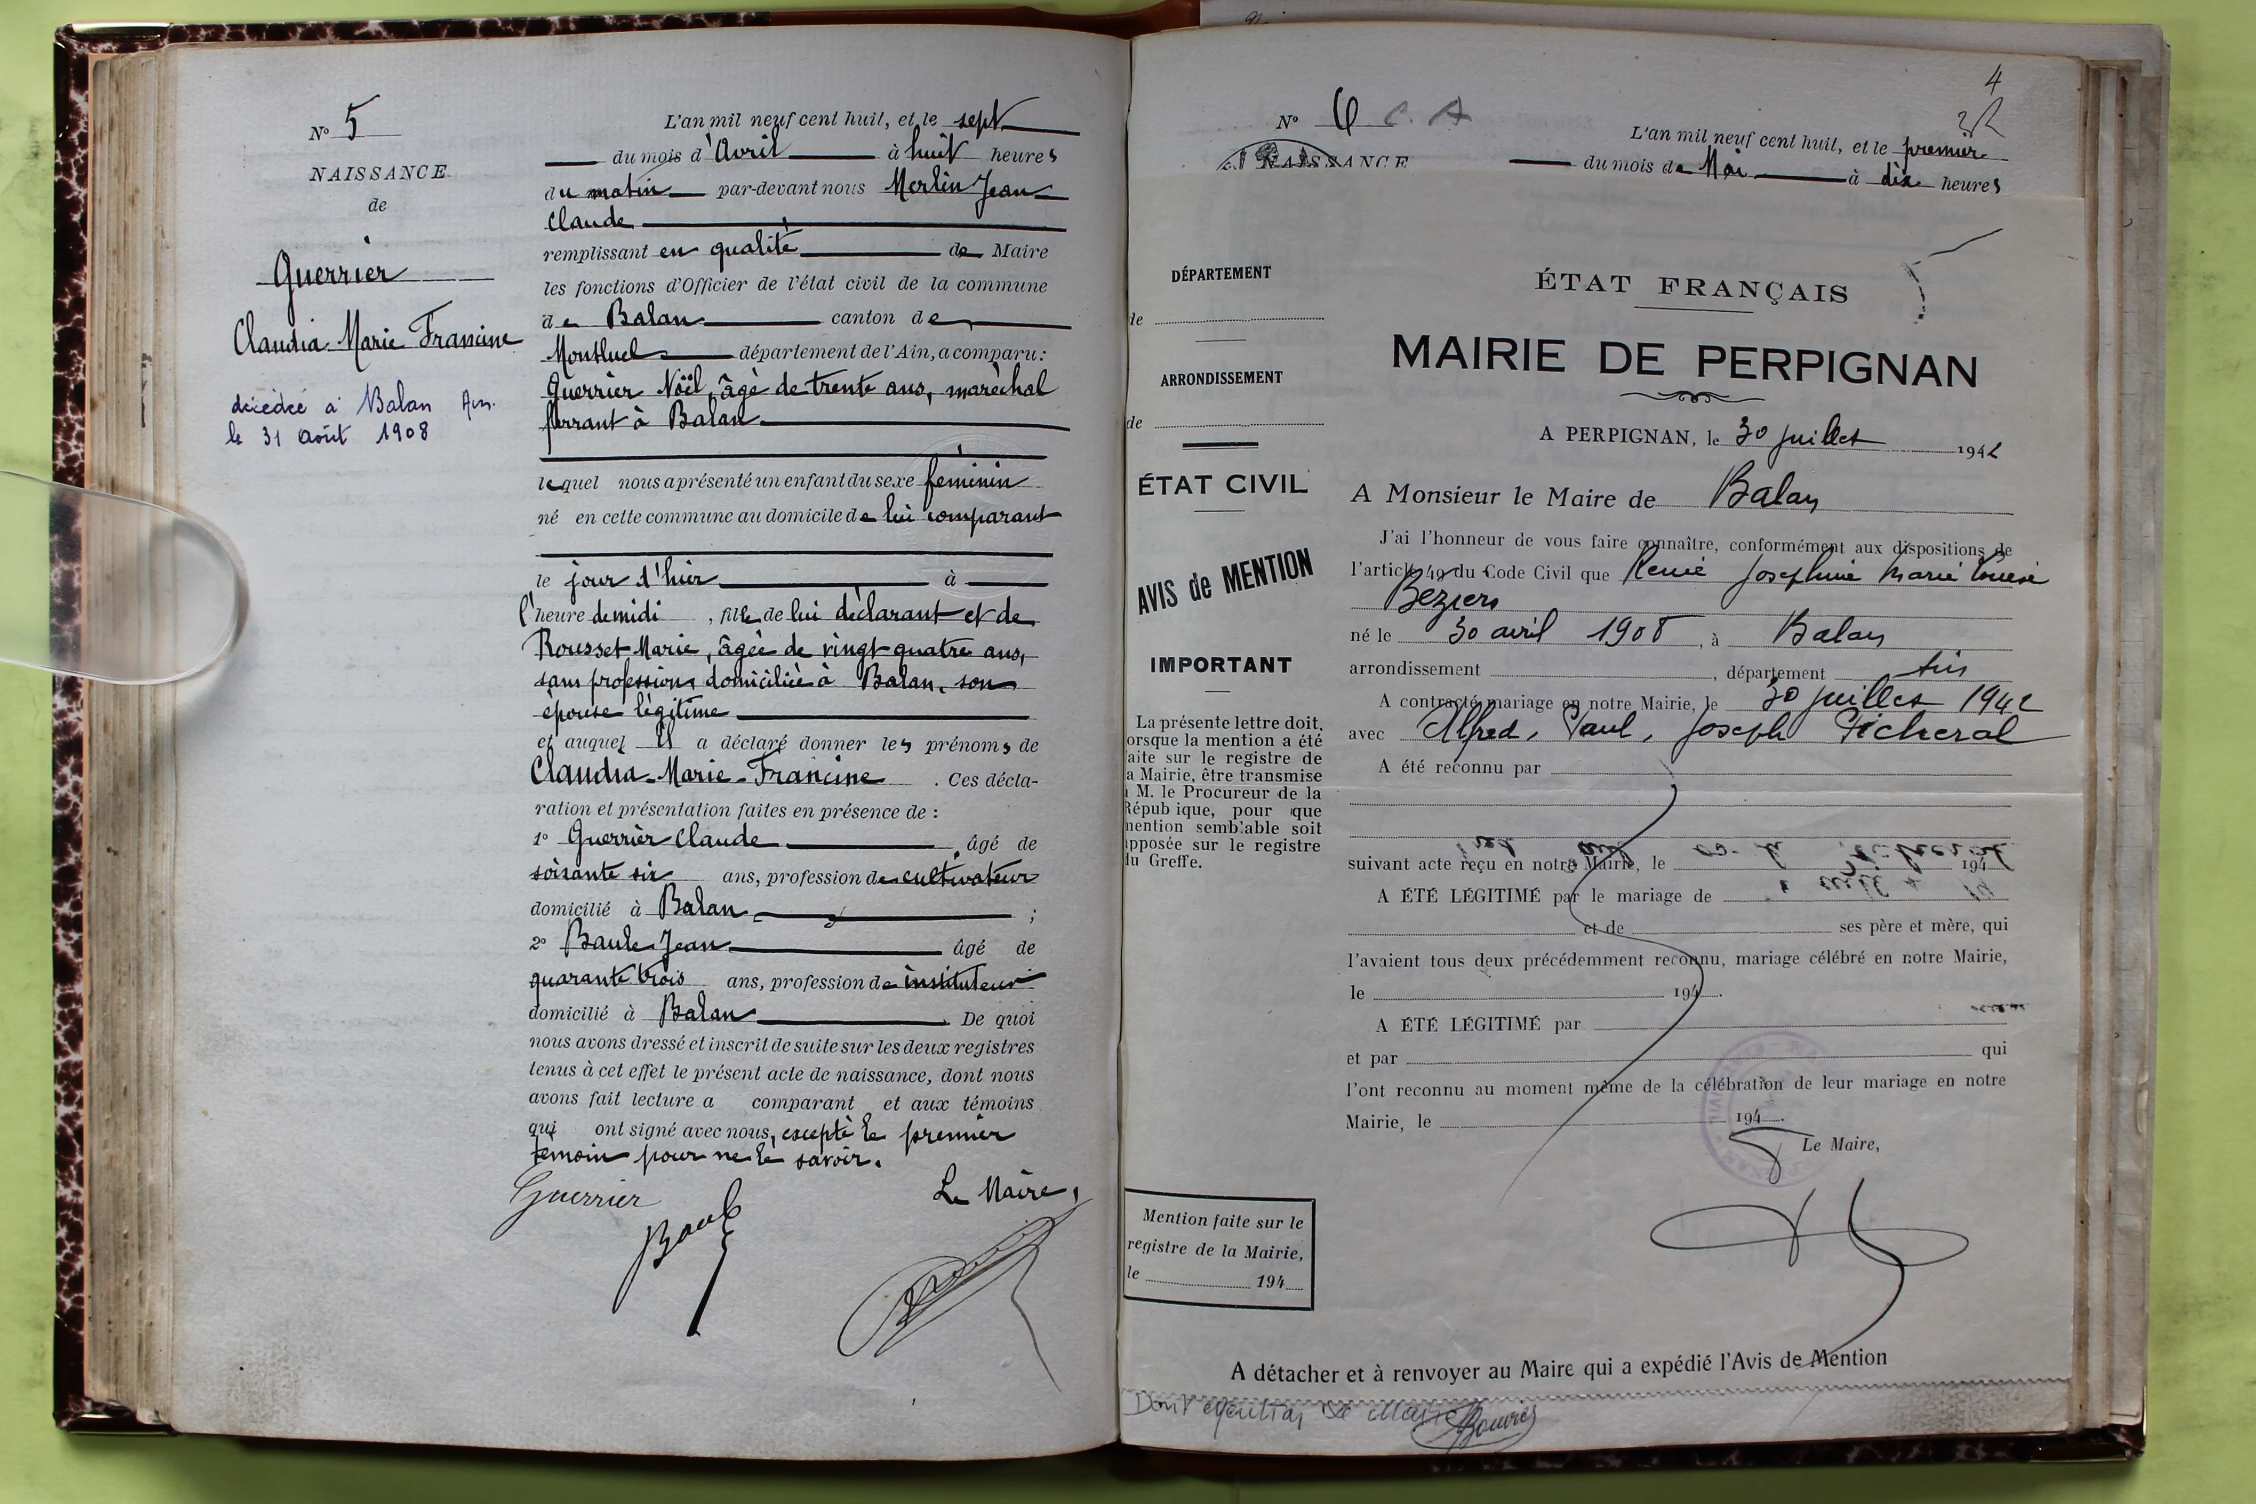 N° 5
NAISSANCE
de
Guerrier
Claudia Marie Francine
décédée à Balan Ain.
le 31 août 1908
L'an mil neuf cent huit, et le sept
du mois d'Avril à huit heures
du matin par-devant nous Merlin Jean
Claude
remplissant en qualité de Maire
les fonctions d'Officier de l'état civil de la commune
de Balan canton de
Montluel département de l'Ain, a comparu :
Guerrier Noël, âgé de trente ans, maréchal
ferrant à Balan
lequel nous a présenté un enfant du sexe féminin
né en cette commune au domicile de lui comparant
le jour d'hier à
l'heure de midi, fille de lui déclarant et de
Rousset Marie, âgée de vingt-quatre ans,
sans profession, domiciliée à Balan, son
épouse légitime
et auquel il a déclaré donner les prénoms de
Claudia-Marie-Francine. Ces décla-
ration et présentation faites en présence de :
1° Guerrier Claude, âgé de
soixante six ans, profession de cultivateur
domicilié à Balan ;
2° Baule Jean âgé de
quarante trois ans, profession de instituteur
domicilié à Balan. De quoi
nous avons dressé et inscrit de suite sur les deux registres
tenus à cet effet le présent acte de naissance, dont nous
avons fait lecture a comparant et aux témoins
qui ont signé avec nous, excepté le premier
témoin pour ne le savoir.
Guerrier
Baule
Le Maire,
4
N° 6 C. A
NAISSANCE
L'an mil neuf cent huit, et le premier
du mois de Mai à dix heures
DÉPARTEMENT
de
ARRONDISSEMENT
de
ÉTAT CIVIL
AVIS de MENTION
IMPORTANT
La présente lettre doit,
orsque la mention a été
aite sur le registre de
a Mairie, être transmise
M. le Procureur de la
Répub ique, pour que
mention semblable soit
apposée sur le registre
du Greffe.
Mention faite sur le
registre de la Mairie,
le 194
ÉTAT FRANÇAIS
MAIRIE DE PERPIGNAN
A PERPIGNAN, le 30 juillet 1942
A Monsieur le Maire de Balan
J'ai l'honneur de vous faire connaître, conformément aux dispositions de
l'article 49 du Code Civil que Renée Josephine Marie Louise
Béziers
né le 30 avril 1908, à Balan
arrondissement, département Ain
A contracté mariage en notre Mairie, le 30 juillet 1942
avec Alfred, Paul, Joseph Picheral
A été reconnu par
suivant acte reçu en notre Mairie, le 194
A ÉTÉ LÉGITIMÉ par le mariage de
et de ses père et mère, qui
l'avaient tous deux précédemment reconnu, mariage célébré en notre Mairie,
le 194.
A ÉTÉ LÉGITIMÉ par
et par qui
l'ont reconnu au moment même de la célébration de leur mariage en notre
Mairie, le 194.
Le Maire,
A détacher et à renvoyer au Maire qui a expédié l'Avis de Mention
Dont